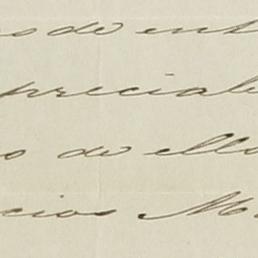 os de ent
preciab
o de ello
cios M